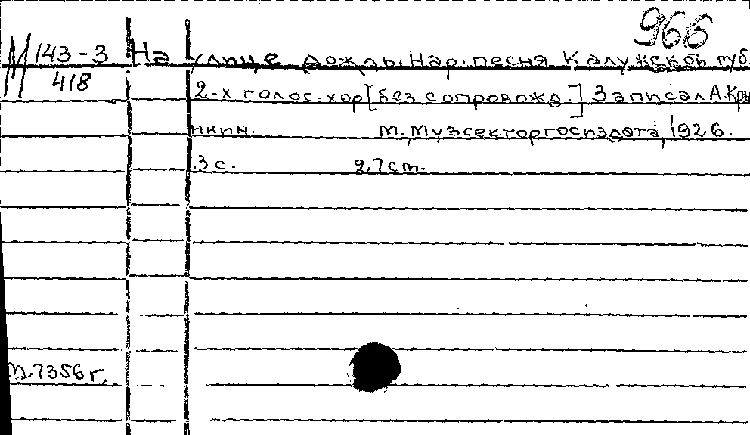 966
М 143-3 На улице дождь. Нар. песня Калужской губ.
418
2-х голос. хор [без сопровожд.] Записал А. Кры
нкин. М., Музсектор госиздата, 1926.
3 с. 2,7 ст.
п. 7356 г.